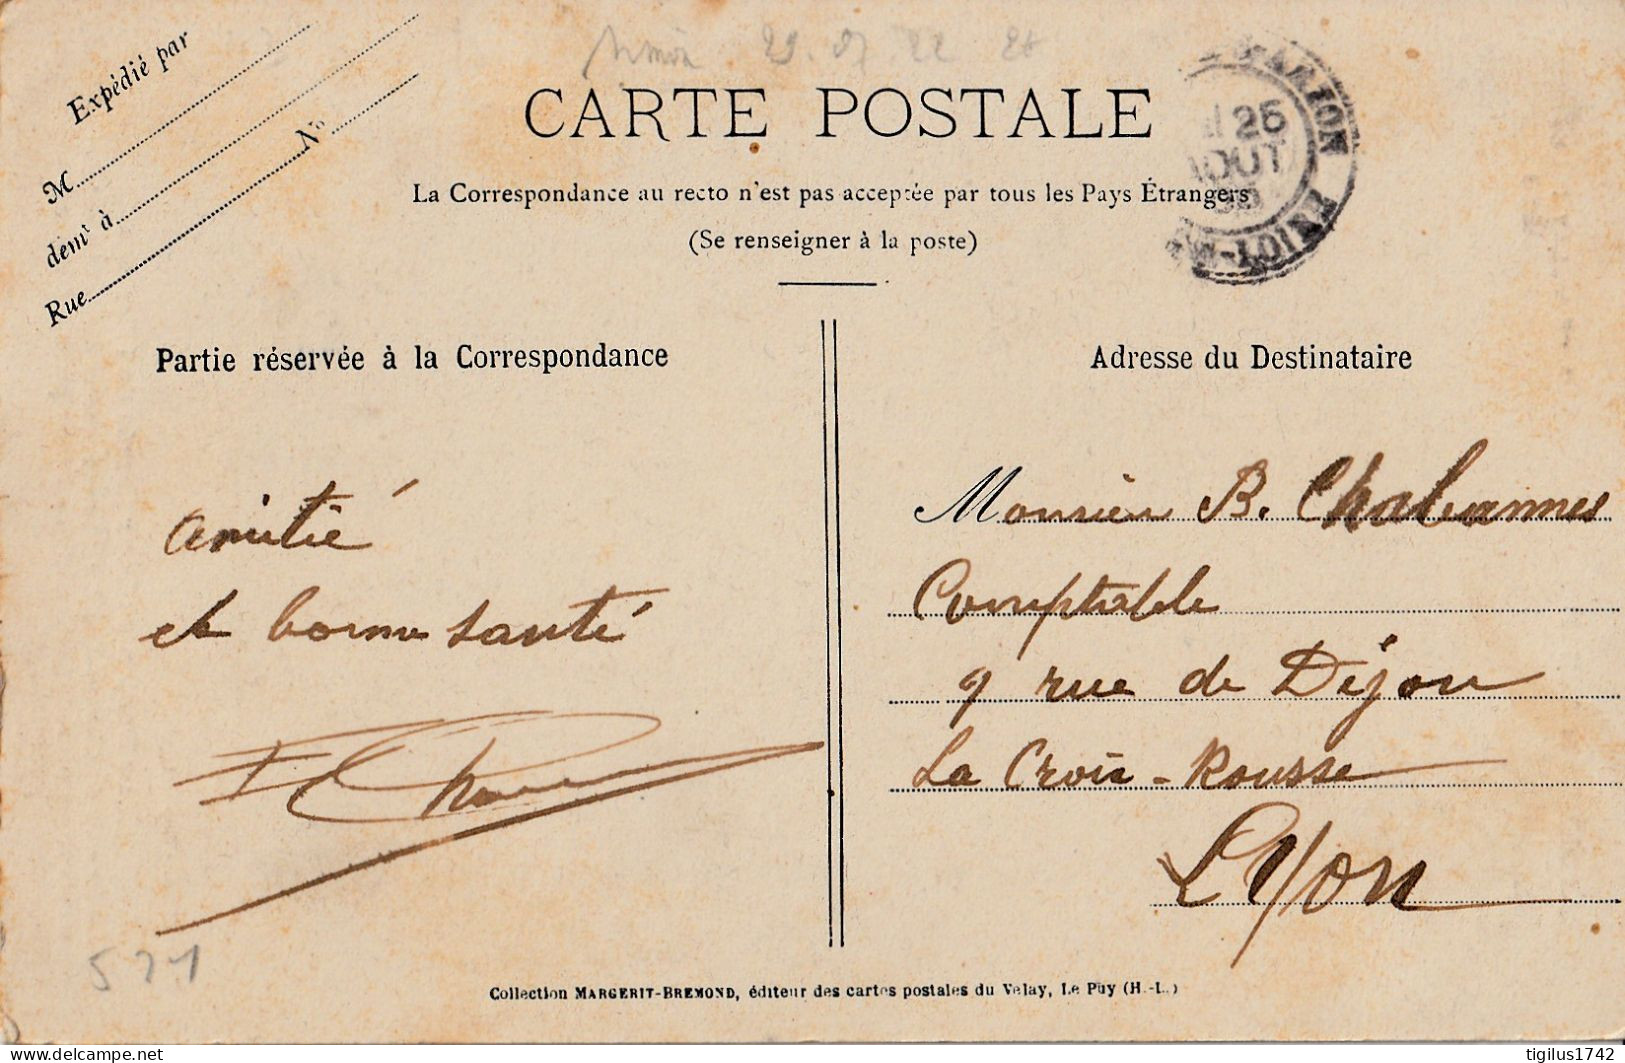 Expédié par
M
demt à
Rue
No
CARTE POSTALE
La Correspondance au recto n'est pas acceptée par tous les Pays Étrangers
(Se renseigner à la poste)
25
AOUT
Partie réservée à la Correspondance
Adresse du Destinataire
amitié
et bonne santé
Monsieur B. Chabannes
Comptable
9 rue de Dijon
La Croix-Rousse
Lyon
571
Collection MARGERIT-BREMOND, éditeur des cartes postales du Velay, Le Puy (H.-L.)
tigilus1742